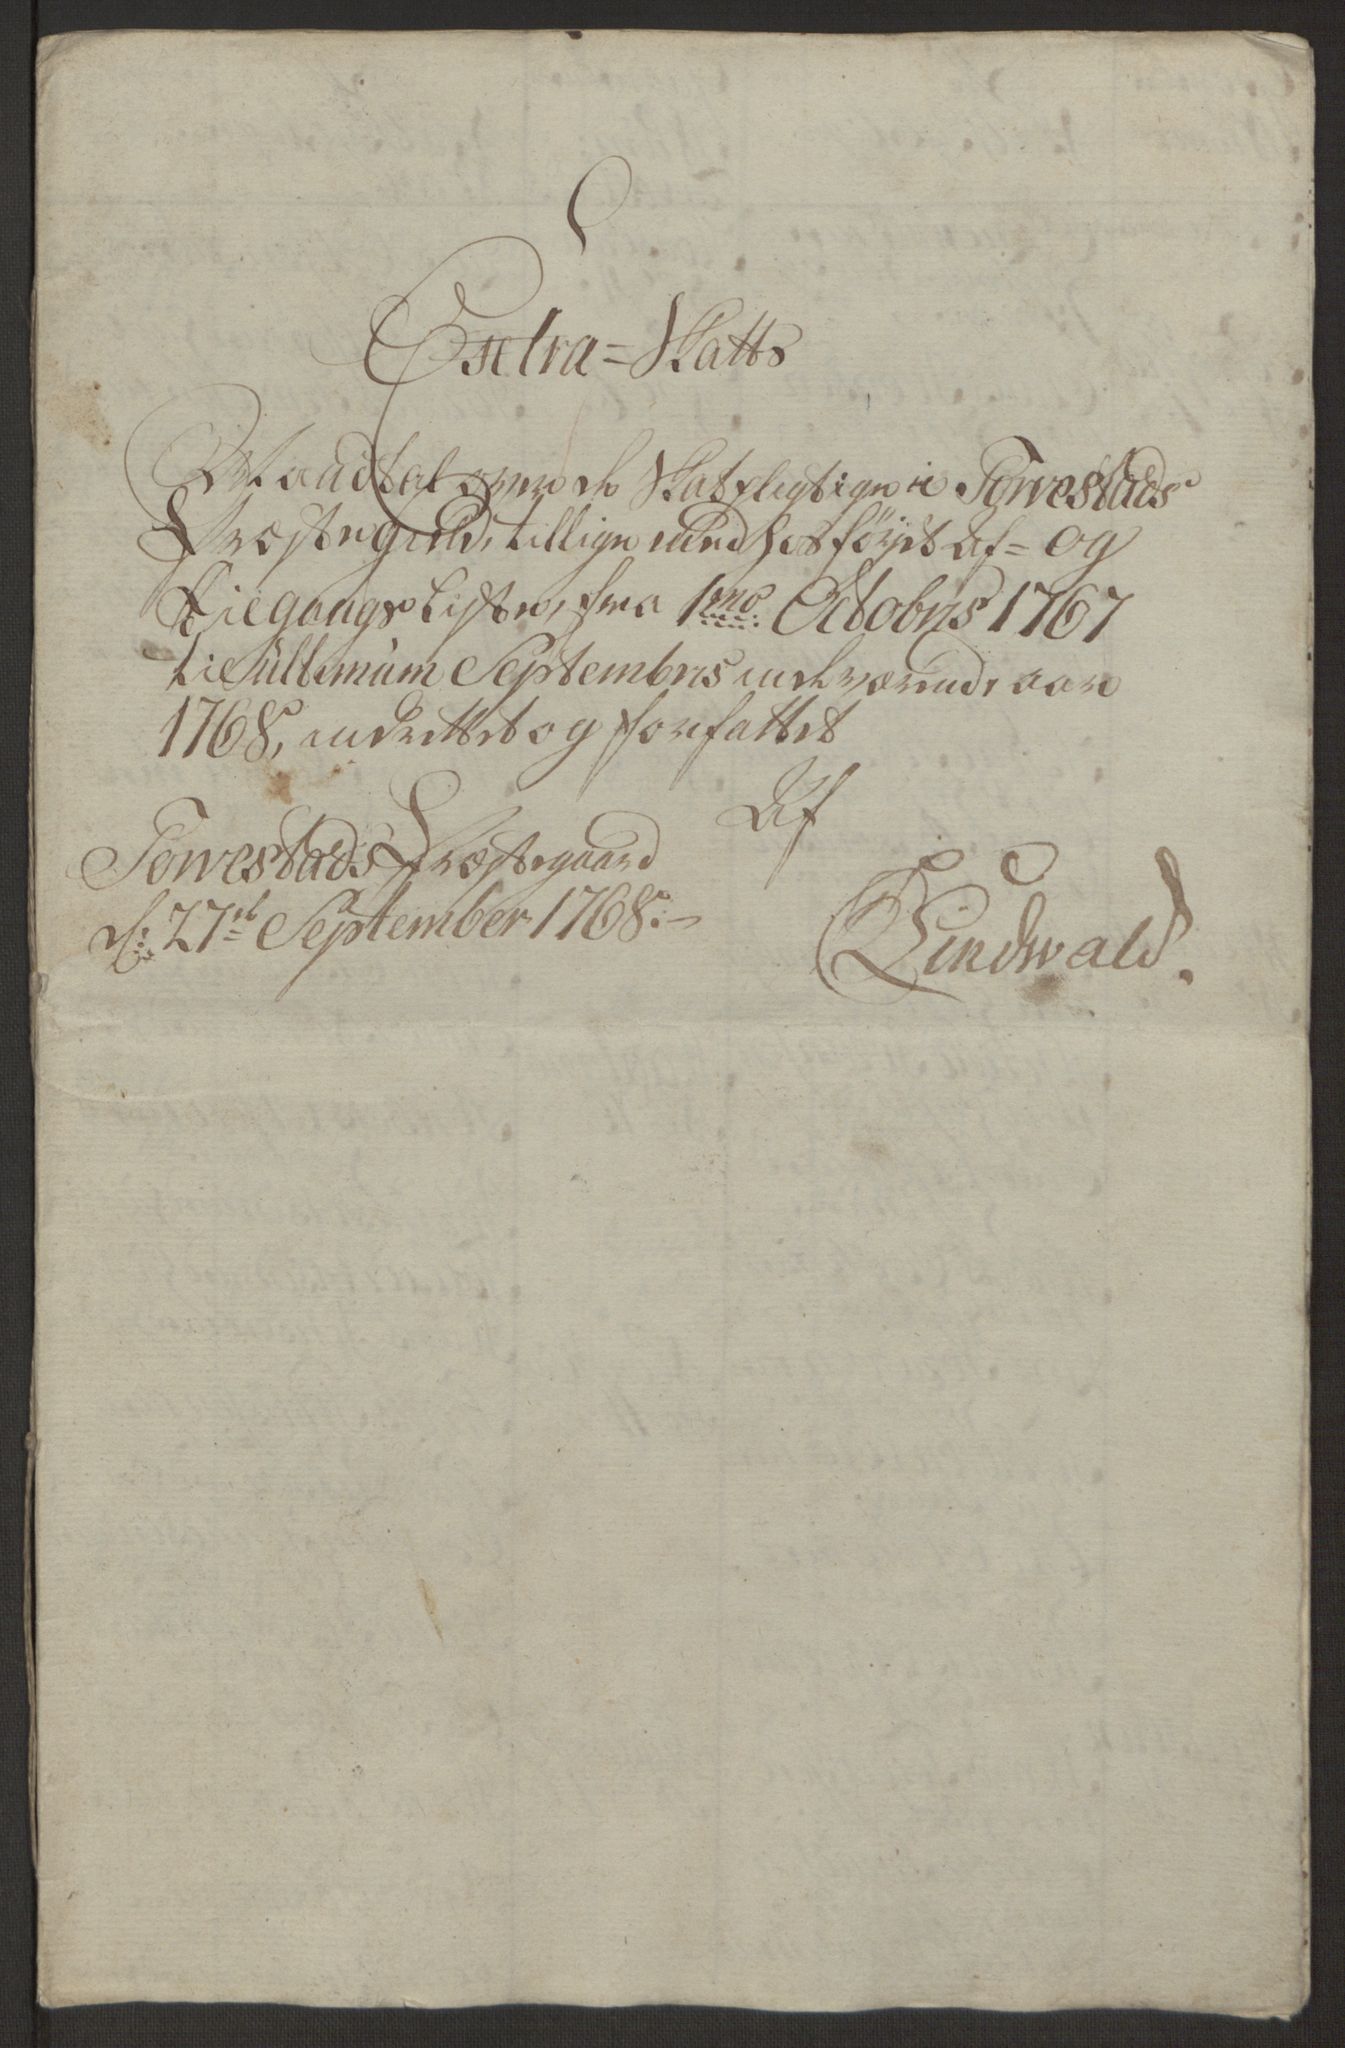 Extra=Skatts
Mandtal over de Skatpligtige i Torrestads
Præstegield, tillige med hosføyet Af= og
Tilgangs Liste, fra 1mo Octobris 1767
til ultimum Septembris indeværende aar
1768, indrettet og forfattet
Af
Torrestads Præstegaard
d: 27de September 1768.
Lindwald.